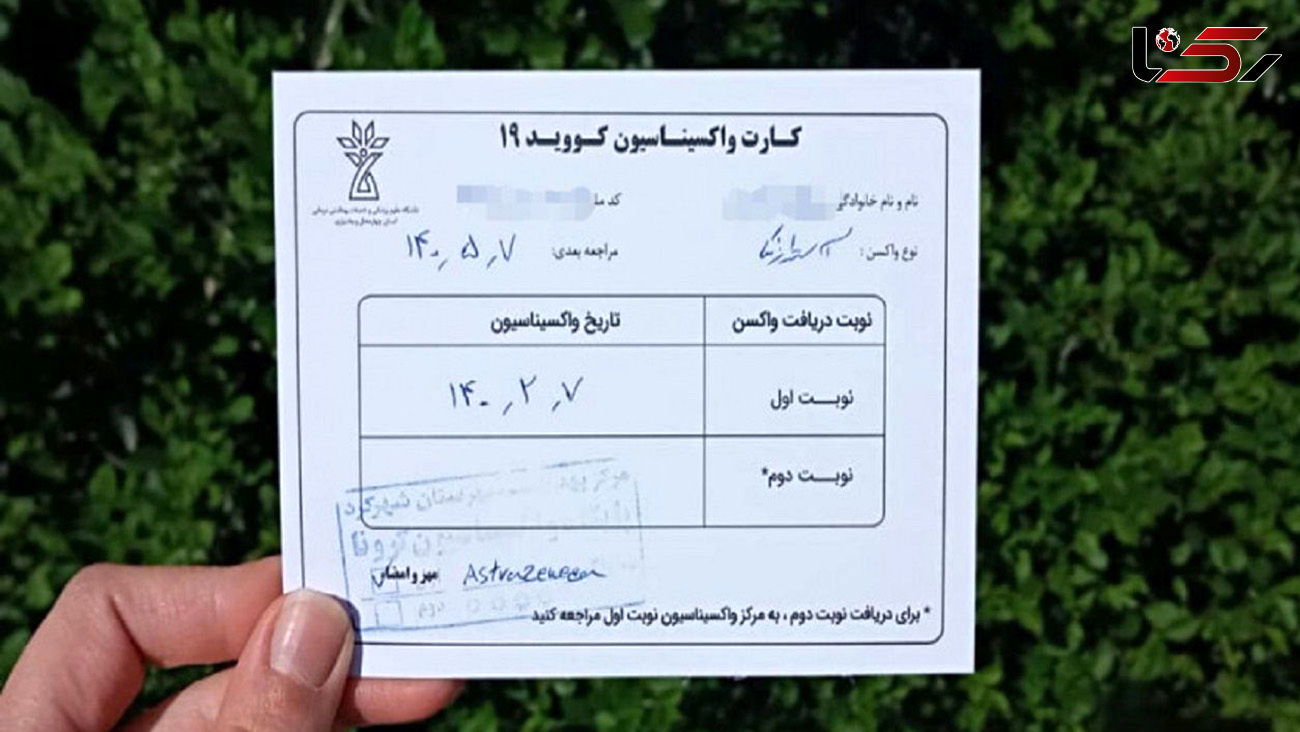 رکنا
کارت واکسیناسیون کووید ۱۹
دانشگاه علوم پزشکی و خدمات بهداشتی درمانی
استان چهارمحال و بختیاری
نام و نام خانوادگی
کد مل
نوع واکسن : آسترازنکا
مراجعه بعدی: ۱۴۰۰٫۵٫۷
نوبت دریافت واکسن
تاریخ واکسیناسیون
نوبت اول
۱۴۰۰٫۲٫۷
نوبت دوم*
شهرستان شهرکرد
کرونا
مهر و امضاء
AstraZeneca
دوم
* برای دریافت نوبت دوم ، به مرکز واکسیناسیون نوبت اول مراجعه کنید